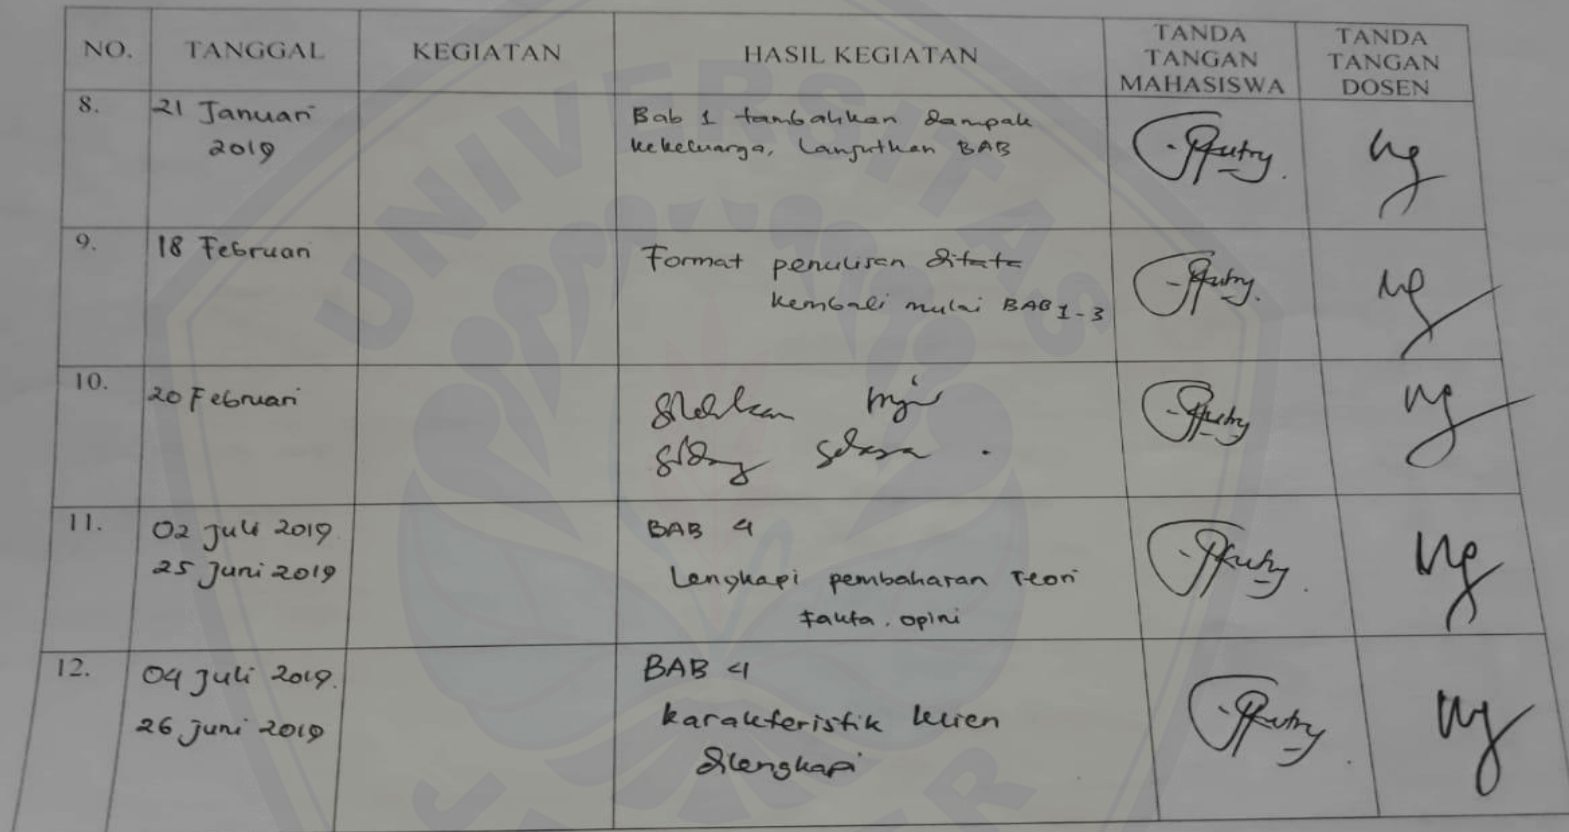 NO. TANGGAL KEGIATAN HASIL KEGIATAN TANDA TANGAN MAHASISWA TANDA TANGAN DOSEN
8. 21 Januari 2019 Bab 1 tambahkan dampak
kekeluarga, Lanjutkan BAB
Putry.
9. 18 Februari Format penulisan ditata
kembali mulai BAB 1-3
Putry.
10. 20 Februari
Putry
11. 02 Juli 2019
25 Juni 2019
BAB 4
Lengkapi pembaharan Teori
Fakta. opini
Putry.
12. 04 Juli 2019.
26 Juni 2019
BAB 4
karakteristik klien
dilengkapi
Putry.
UNIVERSITAS